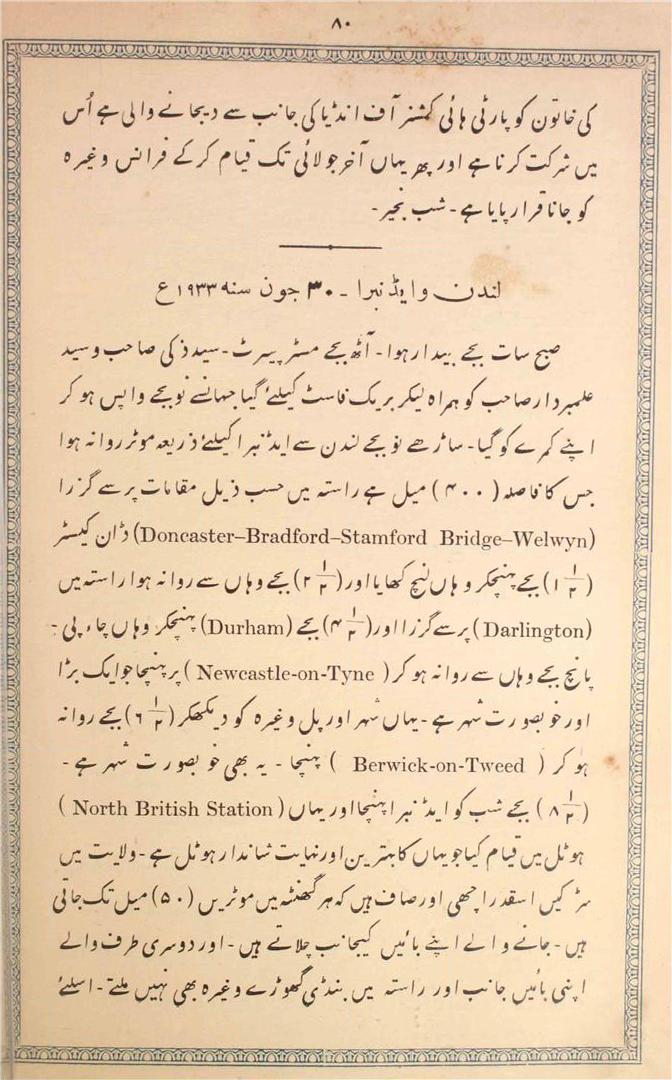 ۸۰
کی خاتون کو پارٹی ہائی کمشنر آف انڈیا کی جانب سے دیجانے والی ہے اُس
میں شرکت کرنا ہے اور پھر یہاں آخر جولائی تک قیام کرکے فرانس وغیرہ
کو جانا قرار پایا ہے - شب بخیر -
لندن و ایڈنبرا - ۳۰ جون سنہ ۱۹۳۳ ع
صبح سات بجے بیدار ہوا - آٹھ بجے مسٹر پیرٹ - سید ذکی صاحب و سید
علمبردار صاحب کو ہمراہ لیکر بریک فاسٹ کیلئے گیا جہانسے نو بجے واپس ہو کر
اپنے کمرے کو گیا - ساڑھے نو بجے لندن سے ایڈنبرا کیلئے ذریعہ موٹر روانہ ہوا
جس کا فاصلہ (۴۰۰) میل ہے راستہ میں حسب ذیل مقامات پر سے گزرا
(Doncaster–Bradford–Stamford Bridge–Welwyn) ڈان کیسٹر
(۱ ۱/۲) بجے پہنچکر وہاں لنچ کھایا اور (۲ ۱/۲) بجے وہاں سے روانہ ہوا راستہ میں
(Darlington) پر سے گزرا اور (۴ ۱/۲) بجے (Durham) پہنچکر وہاں چاء پی -
پانچ بجے وہاں سے روانہ ہو کر (Newcastle-on-Tyne) پر پہنچا جو ایک بڑا
اور خوبصورت شہر ہے - یہاں شہر اور پل وغیرہ کو دیکھکر (۶ ۱/۲) بجے روانہ
ہو کر (Berwick-on-Tweed) پہنچا - یہ بھی خوبصورت شہر ہے -
(۸ ۱/۲) بجے شب کو ایڈنبرا پہنچا اور یہاں (North British Station)
ہوٹل میں قیام کیا جو یہاں کا بہترین اور نہایت شاندار ہوٹل ہے - ولایت میں
سڑکیں اسقدر اچھی اور صاف ہیں کہ ہر گھنٹہ میں موٹریں (۵۰) میل تک جاتی
ہیں - جانے والے اپنے بائیں کیجانب چلاتے ہیں - اور دوسری طرف والے
اپنی بائیں جانب اور راستہ میں بنڈی گھوڑے وغیرہ بھی نہیں ملتے - اسلئے